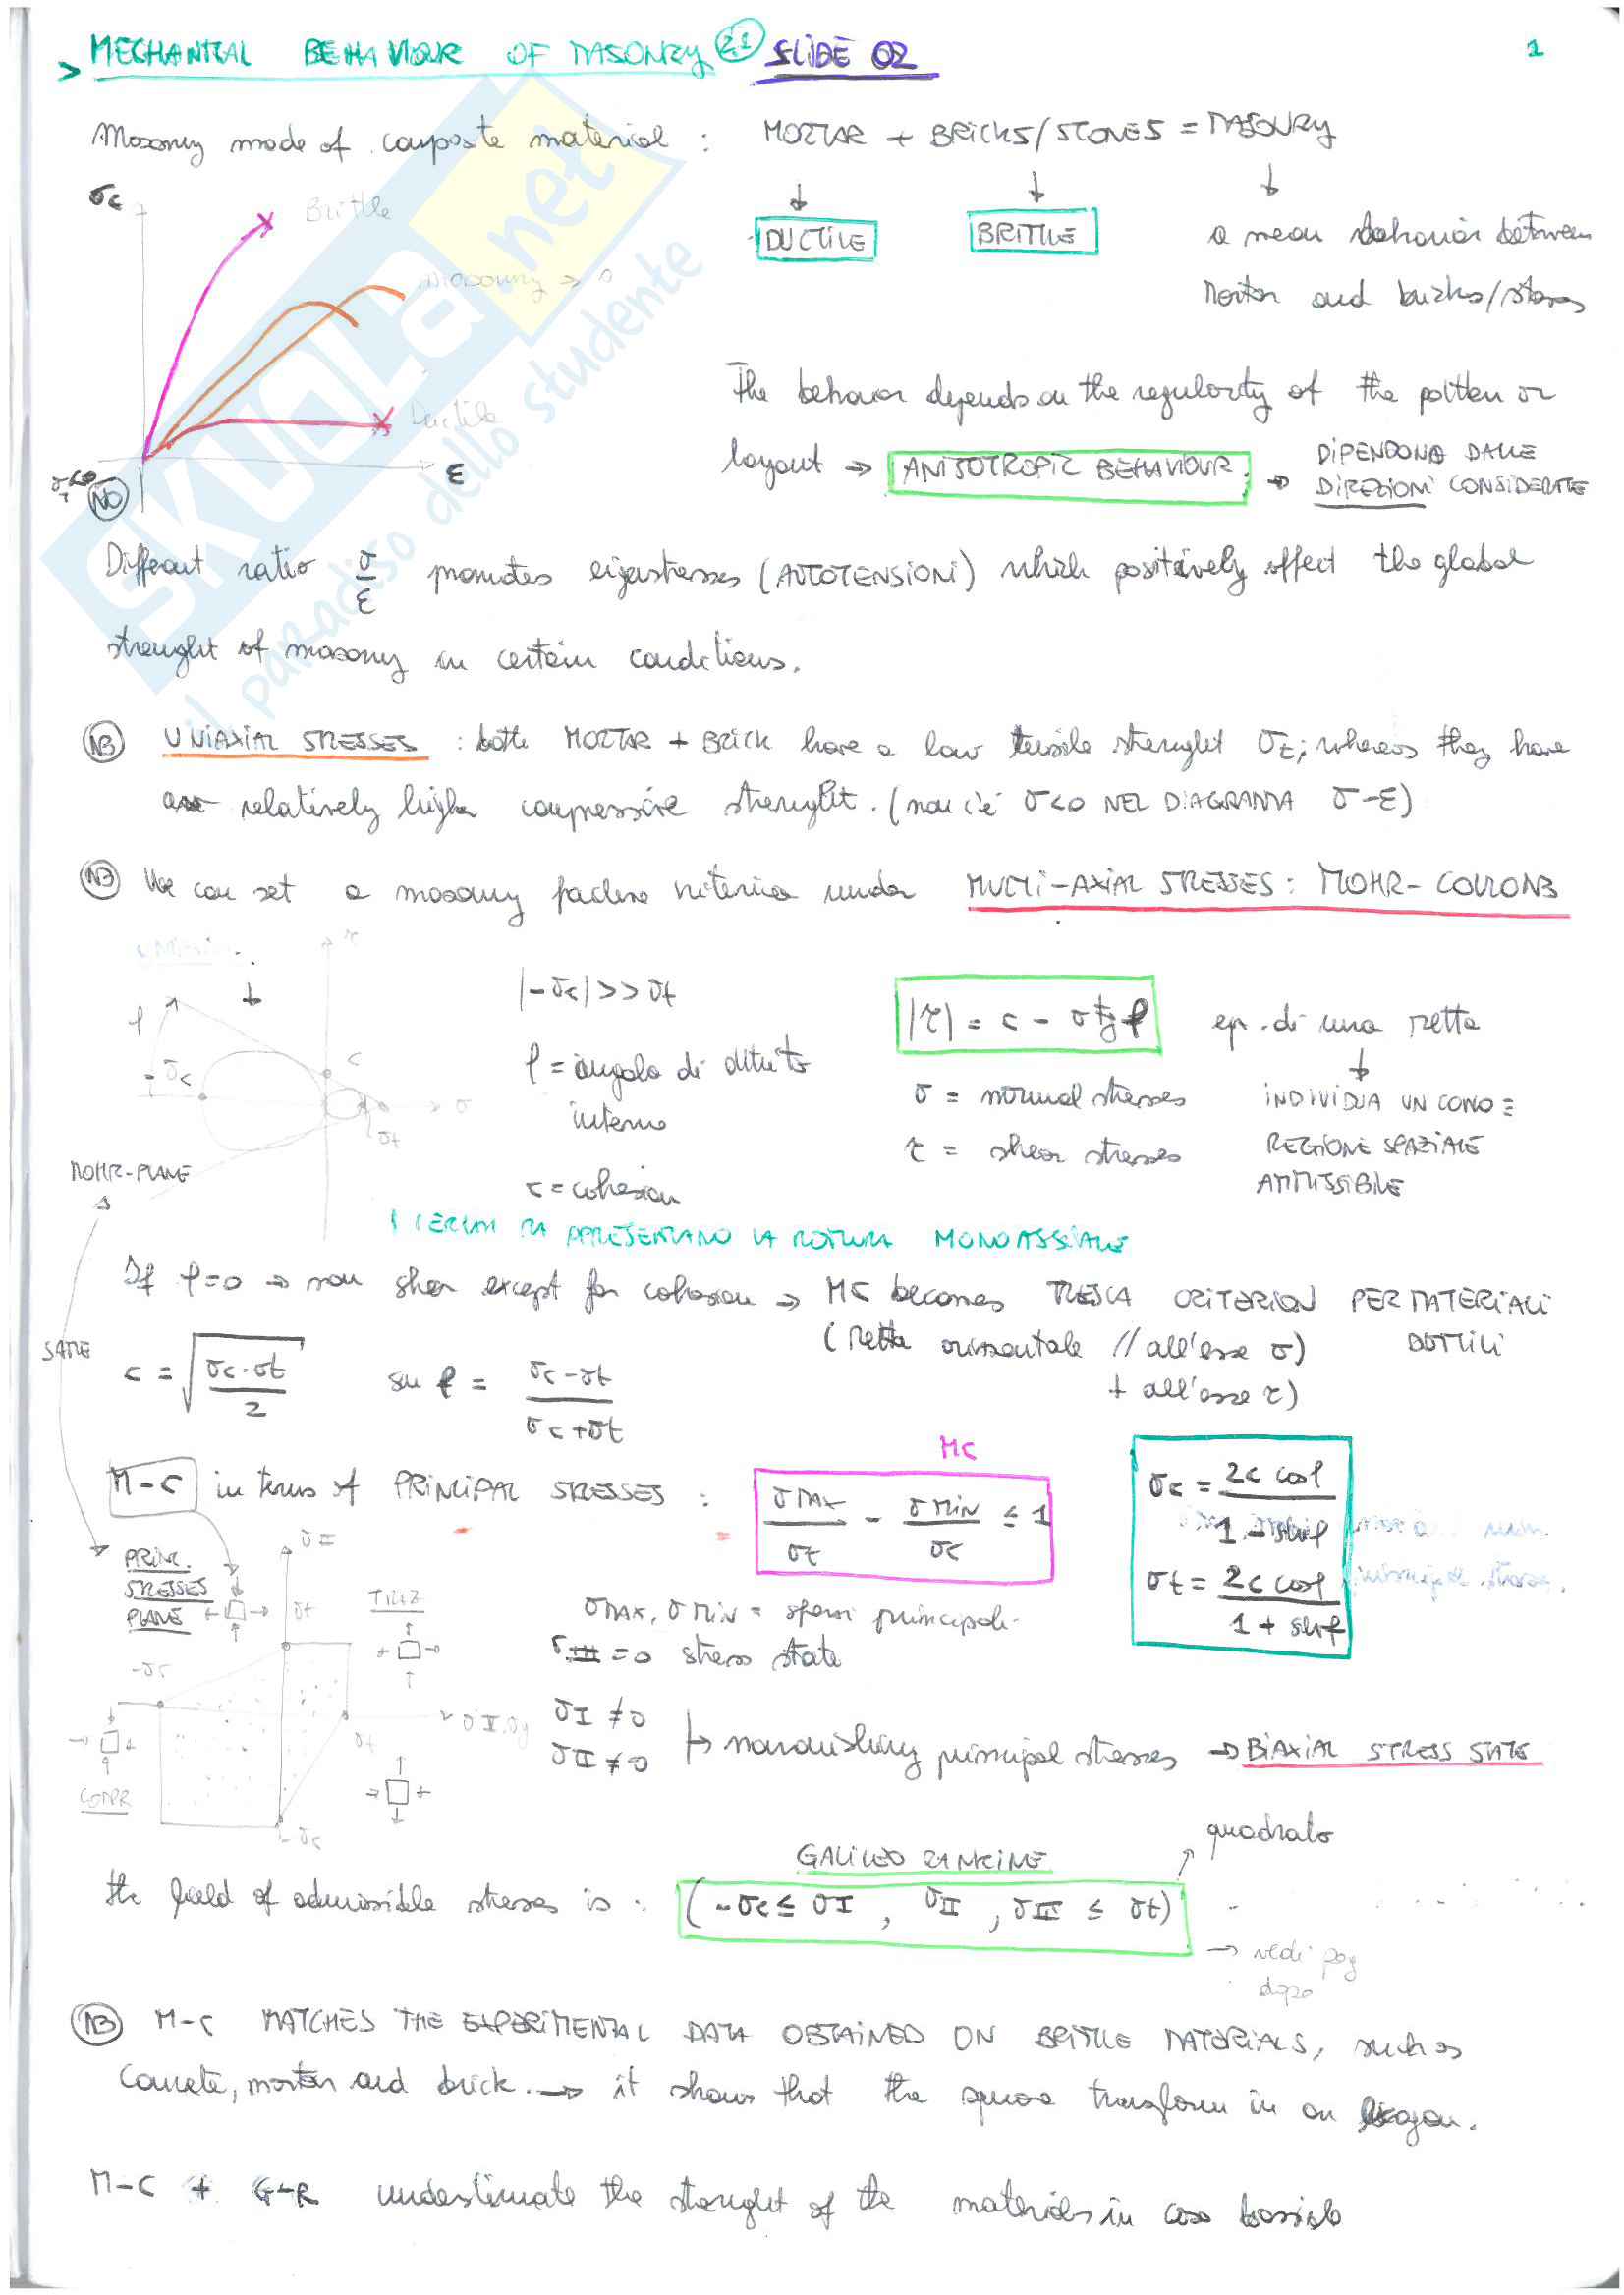 > MECHANICAL BEHAVIOUR OF MASONRY 2.1 SLIDE 02
1
Masonry made of composite material : MORTAR + BRICKS/STONES = MASONRY
↓ ↓ ↓
DUCTILE BRITTLE a mean behavior between
Mortar and bricks/stones
σc
Brittle
Masonry
Ductile
ε
NO
The behavior depends on the regularity of the pattern or
layout → ANISOTROPIC BEHAVIOUR. → DIPENDONO DALLE
DIREZIONI CONSIDERATE
SKUOLA.net
il paradiso dello studente
Different ratio σ/ε promotes eigenstresses (AUTOTENSIONI) which positively effect the global
strenght of masonry in certain conditions.
NB UNIAXIAL STRESSES : both MORTAR + BRICK have a low tensile strenght σt; whereas they have
relatively high compressive strenght. (non c'è σ<0 NEL DIAGRAMMA σ-ε)
NB We can set a masonry failure criteria under MULTI-AXIAL STRESSES: MOHR-COULOMB
|-σc| >> σt
|τ| = c - σ tg φ eq. di una retta
φ = angolo di attrito
interno
c = cohesion
σ = normal stresses
τ = shear stresses
↓
INDIVIDUA UN CONO =
REGIONE SPAZIALE
AMMISSIBILE
φ
-σc
c
σ
σt
MOHR-PLANE
I CERCHI RAPPRESENTANO LA ROTTURA MONOASSIALE
If φ=0 → non shear except for cohesion → MC becomes TRESCA CRITERION PER MATERIALI
DUTTILI
(retta orizzontale // all'asse σ)
+ all'asse τ)
SAME
c = √(σc·σt/2) sin φ = (σc-σt)/(σc+σt)
M-C in terms of PRINCIPAL STRESSES :
MC
σMAX/σt - σMIN/σc ≤ 1
σc = 2c cosφ / 1 - sinφ
σt = 2c cosφ / 1 + sinφ
PRINC.
STRESSES
PLANE
σt
-σc
σt
-σc
COMPR
σMAX, σMIN = sforzi principali
σIII = 0 stress state
σI ≠ 0
σII ≠ 0
nonvanishing principal stresses → BIAXIAL STRESS STATE
GALILEO RANKINE
quadrato
the field of admissible stresses is : (-σc ≤ σI, σII, σIII ≤ σt)
→ vedi pag
dopo
NB M-C MATCHES THE EXPERIMENTAL DATA OBTAINED ON BRITTLE MATERIALS, such as
Concrete, mortar and brick. → it shows that the square transform in an exagon.
M-C + G-R understimate the strenght of the materials in case